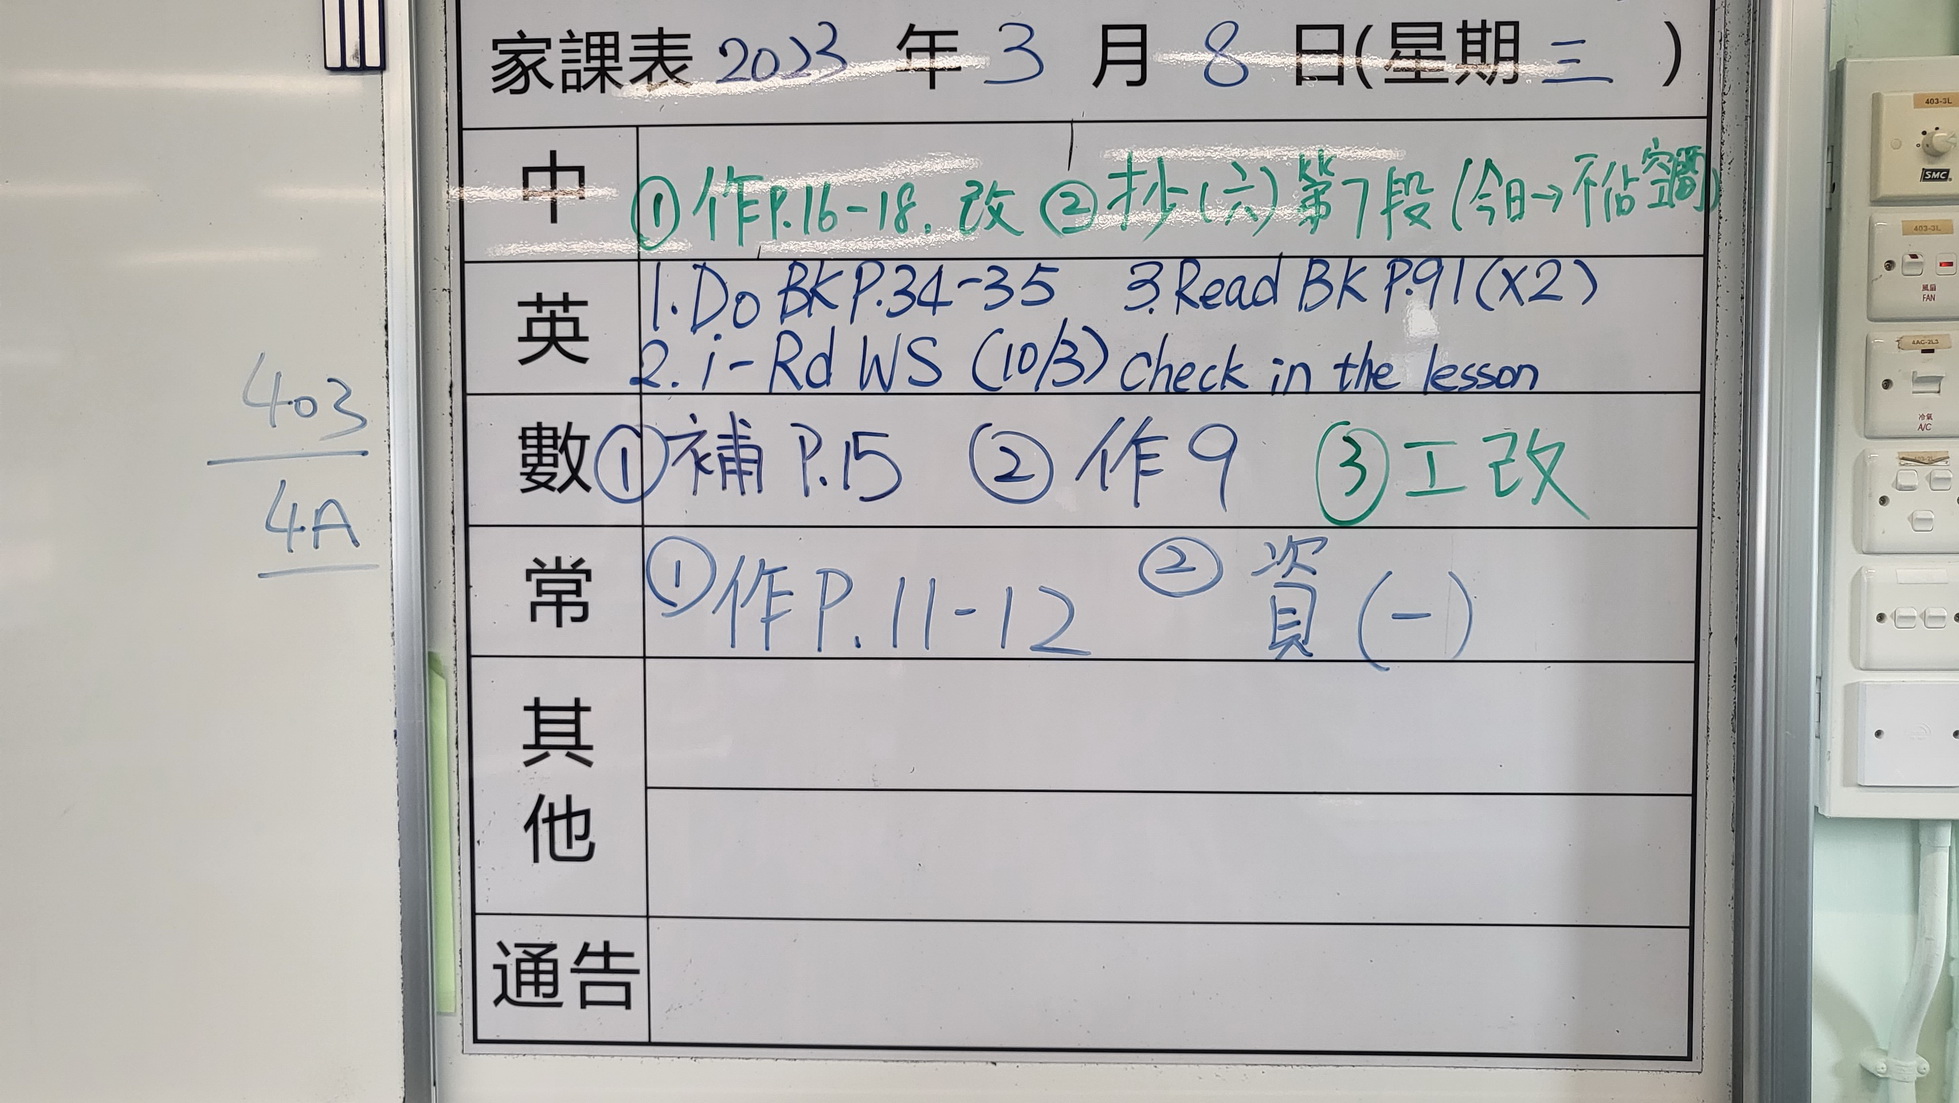 家課表 2023 年 3 月 8 日(星期 三 )
中 ①作P.16-18. 改 ②抄(六)第7段(今日→不佔空間)
英 1.Do BK P.34-35 3.Read BK P.91(×2)
2. i-Rd WS (10/3) check in the lesson
數 ①補 P.15 ②作9 ③工改
常 ①作P.11-12 ②資(一)
其他
通告
403
4A
403-3L
SMC
403-3L
風扇
FAN
4AC-2L5
冷氣
A/C